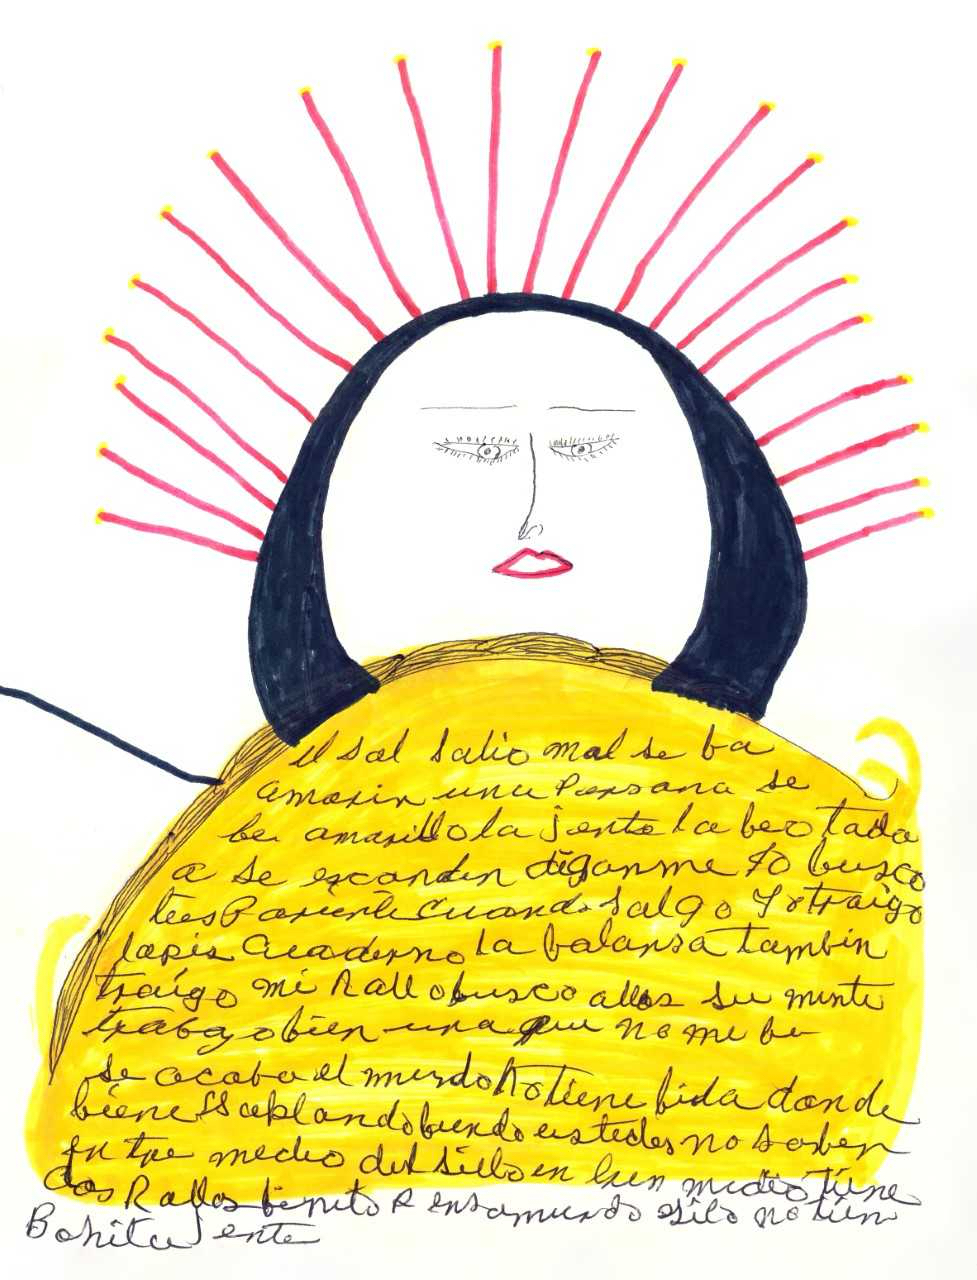 el sol salio mal se ba
amorir una Persona se
be amarillo la jente la beo tada
a se esconden diganme Yo busco
cuando salgo Yo traigo
lapis Cuaderno la balansa tambin
traigo mi Rallo busco allos su mente
trabajo bien una que no me be
se acaba el mundo No tiene bida donde
biene hablando ustedes no saben
en tre medio del en buen medio tiene
dos Rallos benito no tien
Bonita Jente